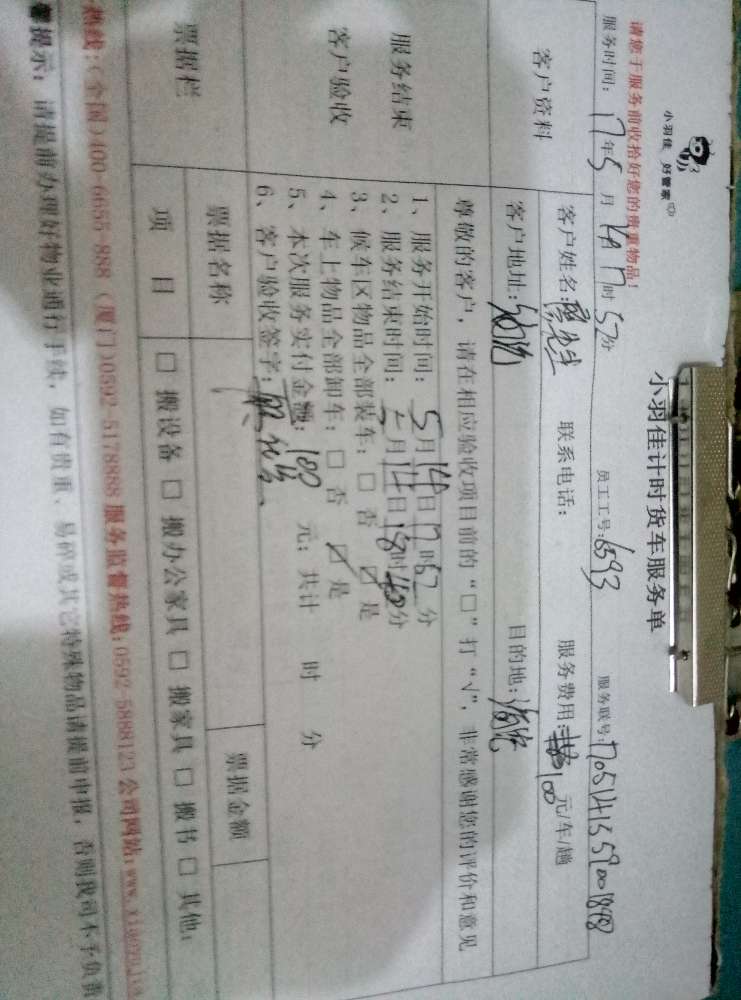 小羽佳 好管家
小羽佳计时货车服务单
请您于服务前收拾好您的贵重物品!
服务时间: 17年5月14日17时52分 员工工号: 6593 服务联号: 1705141559001898
客户资料
客户姓名: 陈先生 联系电话: 服务费用: 100 元/车/趟
客户地址: 目的地: 海沧
尊敬的客户, 请在相应验收项目前的“□”打“√”, 非常感谢您的评价和意见
服务结束
客户验收
1、服务开始时间: 5月14日17时52分
2、服务结束时间: 5月14日18时40分
3、候车区物品全部装车: □ 否 ☑ 是
4、车上物品全部卸车: □ 否 ☑ 是
5、本次服务实付金额: 100 元; 共计 时 分
6、客户验收签字:
票据栏
票据名称 票据金额
项 目 □ 搬设备 □ 搬办公家具 □ 搬家具 □ 搬书 □ 其他:
热线:(全国)400-6655-888 (厦门)0592-5178888 服务监督热线:0592-5888123 公司网站:www.xiaoyujia
馨提示: 请提前办理好物业通行手续, 如有贵重、易碎或其它特殊物品请提前申报, 否则我司不予负责